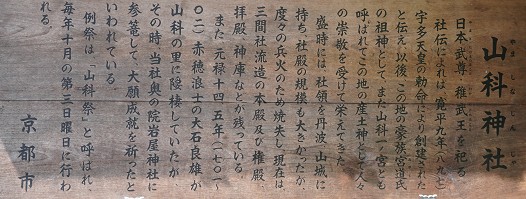 山科神社
やましなじんじゃ
日本武尊、稚武王を祀る。
社伝によれば、寛平九年（八九七）
宇多天皇の勅命により創建された
と伝え、以後、この地の豪族宮道氏
の祖神として、また山科一ノ宮とも
呼ばれてこの地の産土神として人々
の崇敬を受けて栄えてきた。
盛時には社領を丹波、山城に
持ち、社殿の規模も大きかったが、
度々の兵火のため焼失し、現在は、
三間社流造の本殿及び権殿、
拝殿、神庫などが残っている。
また、元禄十四、五年（一七〇一～
〇二）赤穂浪士の大石良雄が
山科の里に隠棲していたが、
その時、当社奥の院岩屋神社に
参篭して、大願成就を祈ったと
いわれている。
例祭は「山科祭」と呼ばれ、
毎年十月の第三日曜日に行わ
れる。
京都市